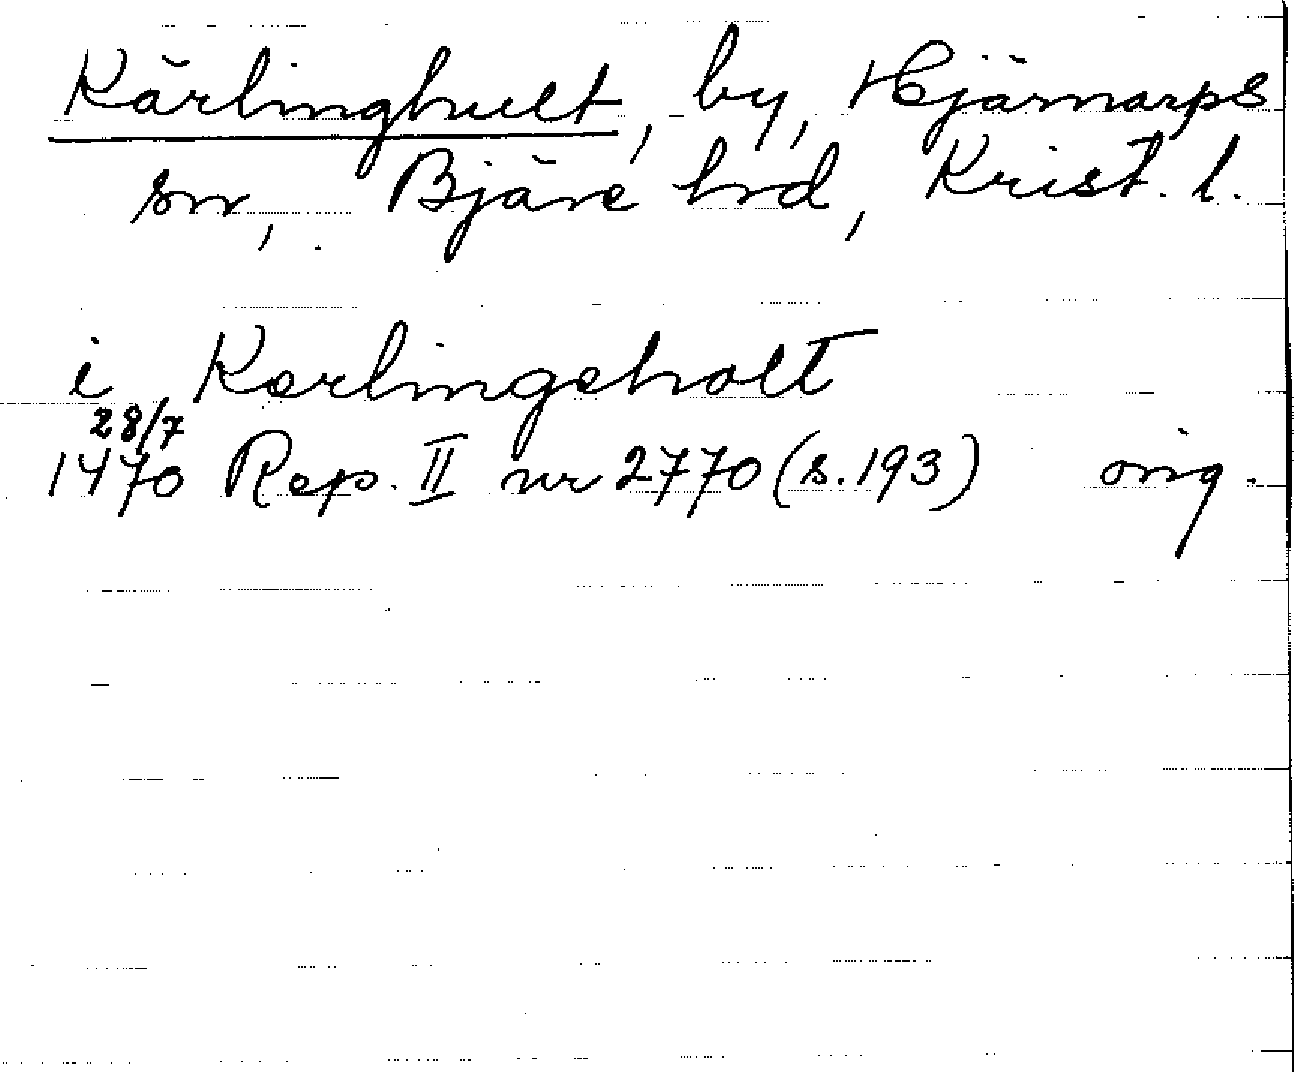 Kärlinghult, by, Hjärnarps
sn, Bjäre hrd, Krist. l.
i Kerlingeholt
28/7
1470 Rep. II nr 2770 (s. 193) orig.